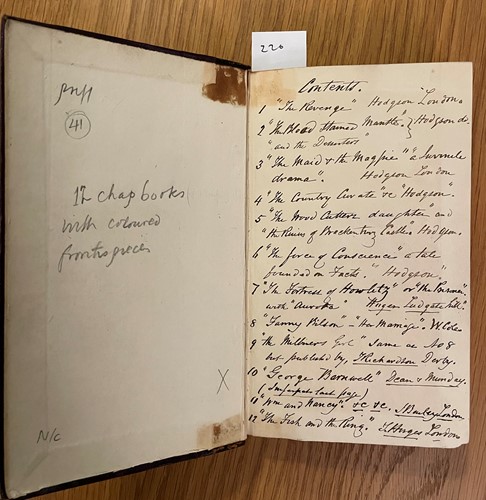 226
pnff
41
12 chapbooks
with coloured
frontispieces
X
N/c
Contents.
1 "The Revenge" Hodgson London
2 "The Blood Stained Mantle" } Hodgson do.
"and the Deserters"
3 "The Maid & the Magpie" "a Juvenile
drama". Hodgson London
4 "The Country Curate" &c "Hodgson".
5 "The Wood Cutters daughter" and
"the Ruins of Brockenberg Castle" Hodgson.
6 "The force of Conscience" a tale
founded on Facts. "Hodgson".
7 "The Fortress of Howlitz" or "the Prisoner"
with "Aurora" Hughes Ludgate hill.
8 "Fanny Wilson" - "Her Marriage". W. Cole
9 "The Milliners Girl" same as No 8
but published by, T. Richardson Derby.
10 "George Barnwell" Dean & Munday.
(Imperfect last page)
11 "Wm and Nancy". &c &c. J. Bailey London
12 "The Fish and the Ring". T. Hughes London